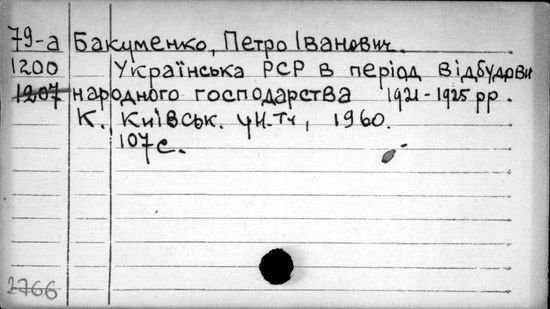 79-а Бакуменко, Петро Іванович.
1200 Українська РСР в період відбудови
1207 народного господарства 1921-1925 рр.
К., Київськ. ун-т, 1960.
107 с.
2766